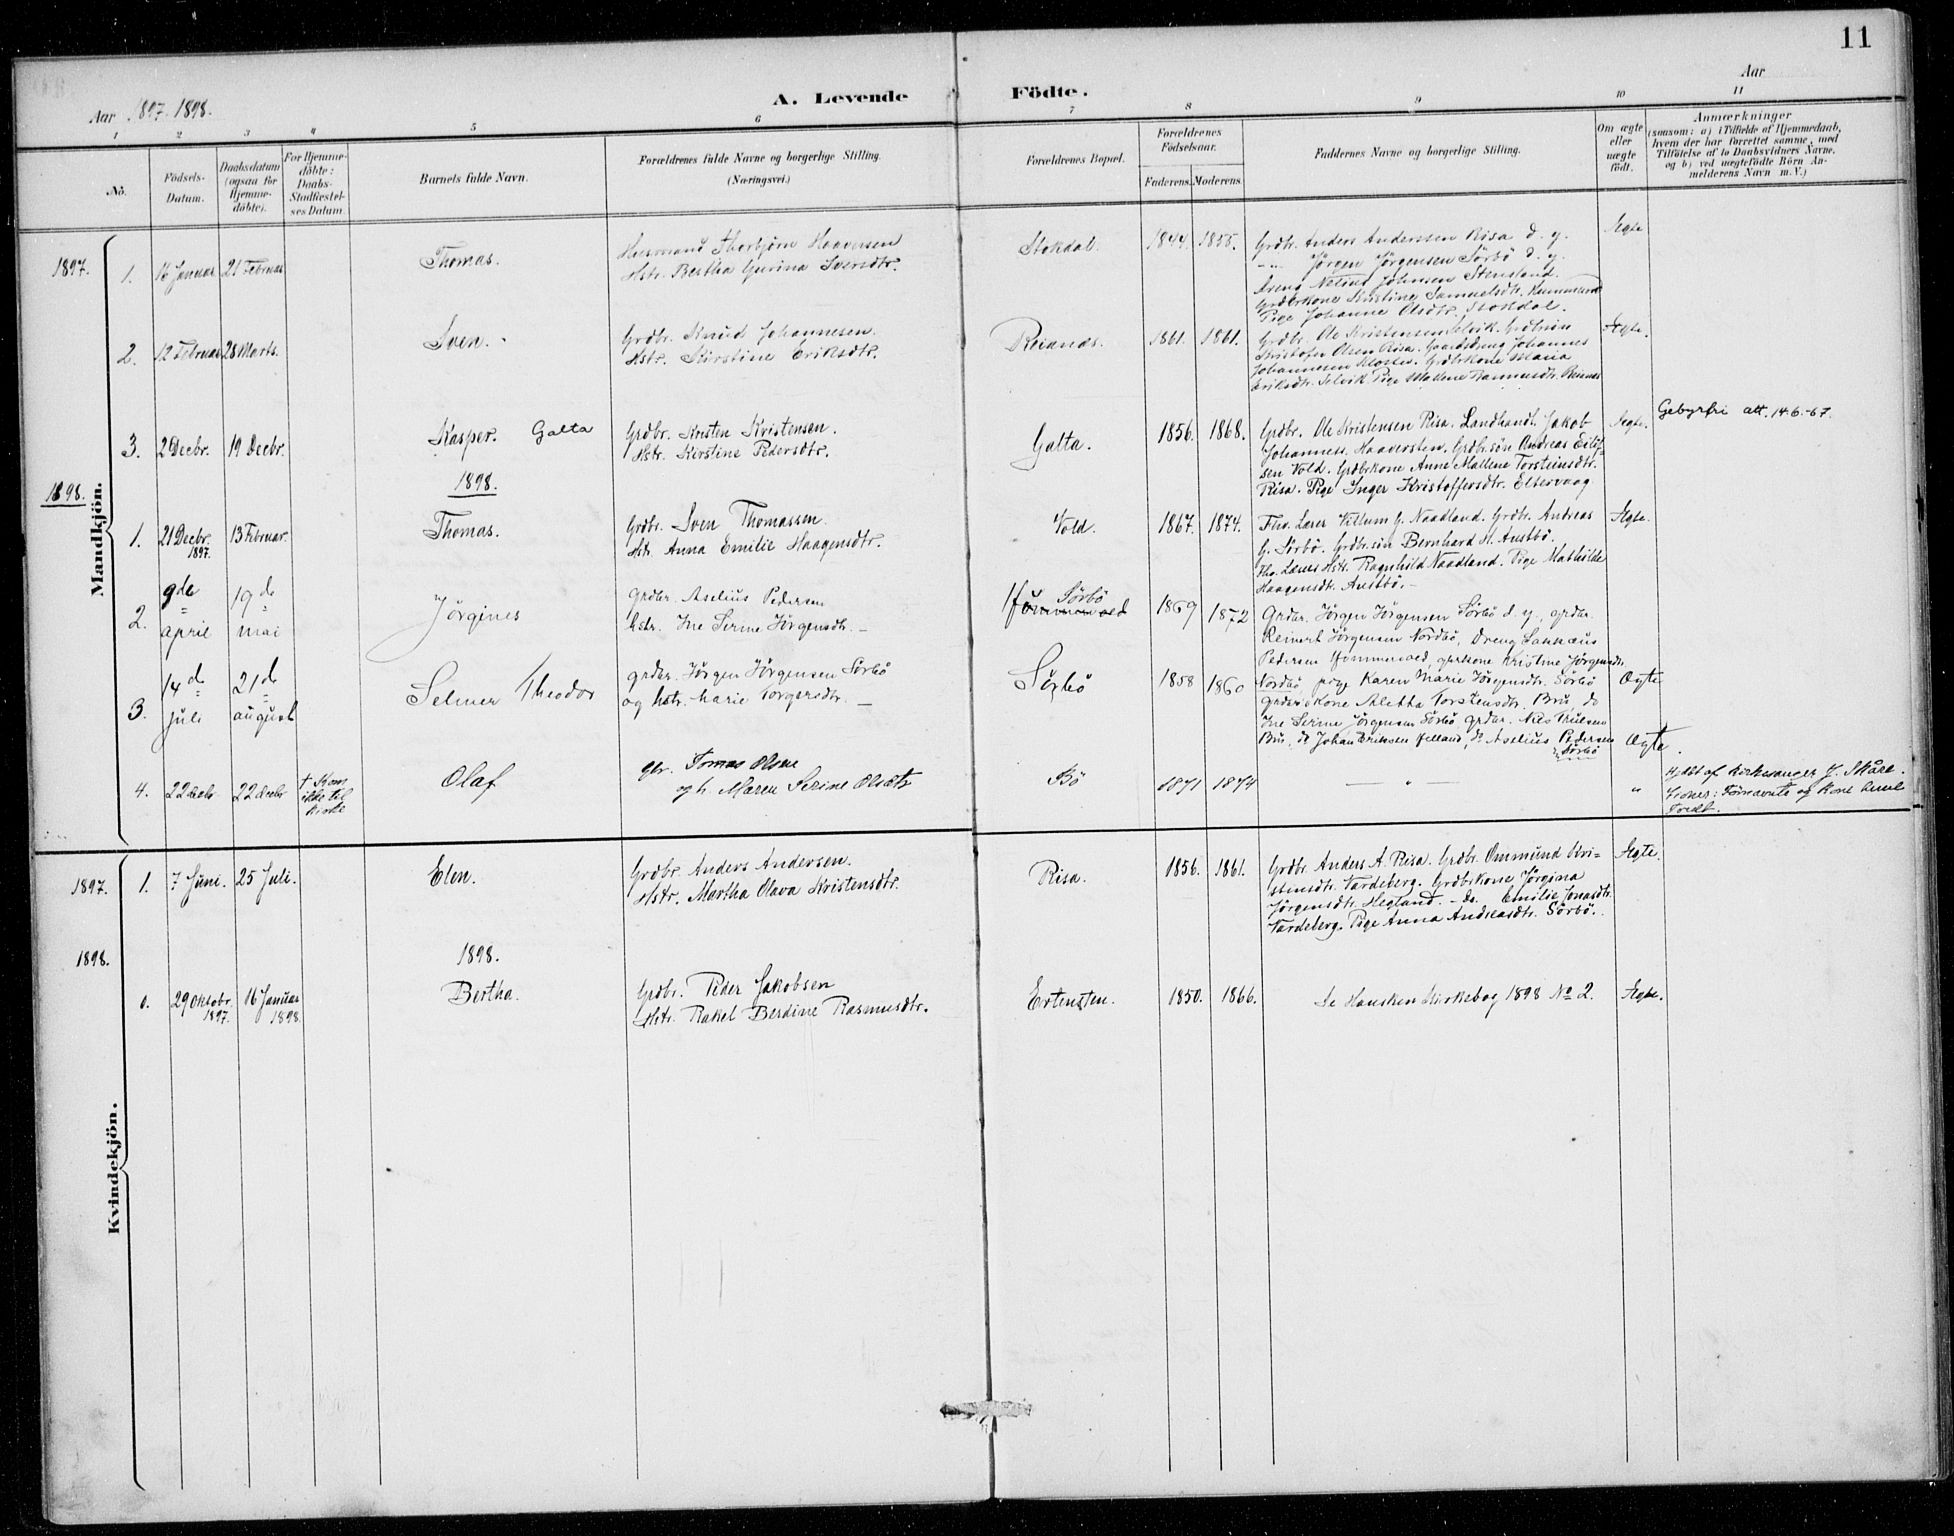 11
Aar 1897. 1898.
A. Levende Födte.
Aar
1 2 3 4 5 6 7 8 9 10 11
No.
Födsels-
Datum.
Daabsdatum
(ogsaa for
Hjemme-
döbte).
For Hjemme-
döbte:
Daabs-
Stadfæstel-
ses Datum.
Barnets fulde Navn.
Forældrenes fulde Navne og borgerlige Stilling.
(Næringsvei.)
Forældrenes Bopæl.
Forældrenes
Födselsaar.
Faderens. Moderens.
Faddernes Navne og borgerlige Stilling.
Om ægte
eller
uægte
födt.
Anmærkninger
(saasom: a) i Tilfælde af Hjemmedaab,
hvem der har forrettet samme, med
Tilföielse af to Daabsvidners Navne,
og b) ved uægtefödte Börn An-
melderens Navn m. V.)
Mandkjön.
1897.
1. 16 Januar 21 Februar
Thomas.
Husmand Thorbjörn Haaversen
Hstr. Bertha Gurina Iversdtr.
Stokdal. 1844. 1855.
Grdbr. Anders Anderssen Risa d. y.
Jörgen Jörgensen Sörbö d. y.
Dreng Johnsen Stensland.
Grdbrkone Kristine Samuelsdtr.
Pige Johanne Olsdtr. Stokdal.
Ægte
2. 12 Februar 28 Marts.
Sven.
Grdbr. Knud Johannesen.
Hstr. Kirstine Eriksdtr.
Reianes. 1861. 1861.
Grdbr. Ole Kristensen Selvik. Grdbrsön
Kristofer Olsen Risa. Gaardsdreng Johannes
Johannesen Kloster. Grdbrkone Maria
Eriksdtr. Selvik. Pige Mallene Rasmusdtr. Reianes
Ægte.
3. 2 Decbr. 19 Decbr.
Kasper. Galta
Grdbr. Kristen Kristensen.
Hstr. Kirstine Pedersdtr.
Galta. 1856. 1868.
Grdbr. Ole Kristensen Risa. Landhandl. Jakob
Johannes Haaversten. Grdbrsön Andreas Eilif-
sen Vold. Grdbrkone Anne Mallene Torsteinsdtr.
Risa. Pige Inger Kristoffersdtr. Eltervaag
Ægte.
Gebyrfri att. 14.6.-67.
1898.
1898.
1. 21 Decbr. 1897. 13 Februar.
Thomas.
Grdbr. Sven Thomassen.
Hstr. Anna Emilie Haagensdtr.
Vold. 1867. 1874.
Fhv. Lærer Villum G. Naadland. Grdbr. Andreas
G. Sörbö. Grdbrsön Bernhard H. Austbö.
Fhv. Lærers Hstr. Ragnhild Naadland. Pige Mathilde
Haagensdtr. Austbö.
Ægte.
2. 9de april 19de mai
Jörgines
Grdbr. Aselius Pedersen
hstr. Ine Serine Jörgensdtr.
Sörbö 1869 1872
Grdbr. Jörgen Jörgensen Sörbö d. y., grdbr.
Reinert Jörgensen Nordbö, Dreng
Pedersen, gbrkone Kristine Jörgensdtr.
Nordbö pige Karen Marie Jörgensdtr. Sörbö
3. 14de juli 21de august
Selmer Theodor
grdbr. Jörgen Jörgensen Sörbö
og hstr. Marie Torgersdtr.
Sörbö 1858 1860
Grdbr's Kone Aletta Torstensdtr. Bru, do
Ine Serine Jörgensen Sörbö grdbr. Nils Truelsen
Bru, do Johan Eriksen Helland, do Aselius Pedersen
Sörbö
Ægte
Ægte.
4. 22 decbr 22 decbr
† Kom
ikke til
kirke
Olaf
gbr. Tomas Olsen
og h. Maren Serine Olsdtr
Bö 1871 1874
— " — "
Hjdbt af kirkesanger J. Skåre.
Vidner: og kone
Kvindekjön.
1897. 1. 7 Juni. 25 Juli.
Elen.
Grdbr. Anders Andersen.
Hstr. Martha Olava Kristensdtr.
Risa. 1856. 1861.
Grdbr. Anders A. Risa. Grdbr. Ommund Kri-
stensdtr. Vardeberg. Grdbrkone Jörgina
Jörgensdtr. Hegland. - do. Emilie Jonasdtr.
Vardeberg. Pige Anna Andreasdtr. Sörbö.
Ægte.
1898.
1898.
0. 29 Oktobr. 1897. 16 Januar 1898.
Bertha.
Grdbr. Peder Jakobsen
Hstr. Rakel Berdine Rasmusdtr.
Ertensten. 1850. 1866.
Se Hausken Kirkebog 1898 No 2.
Ægte.